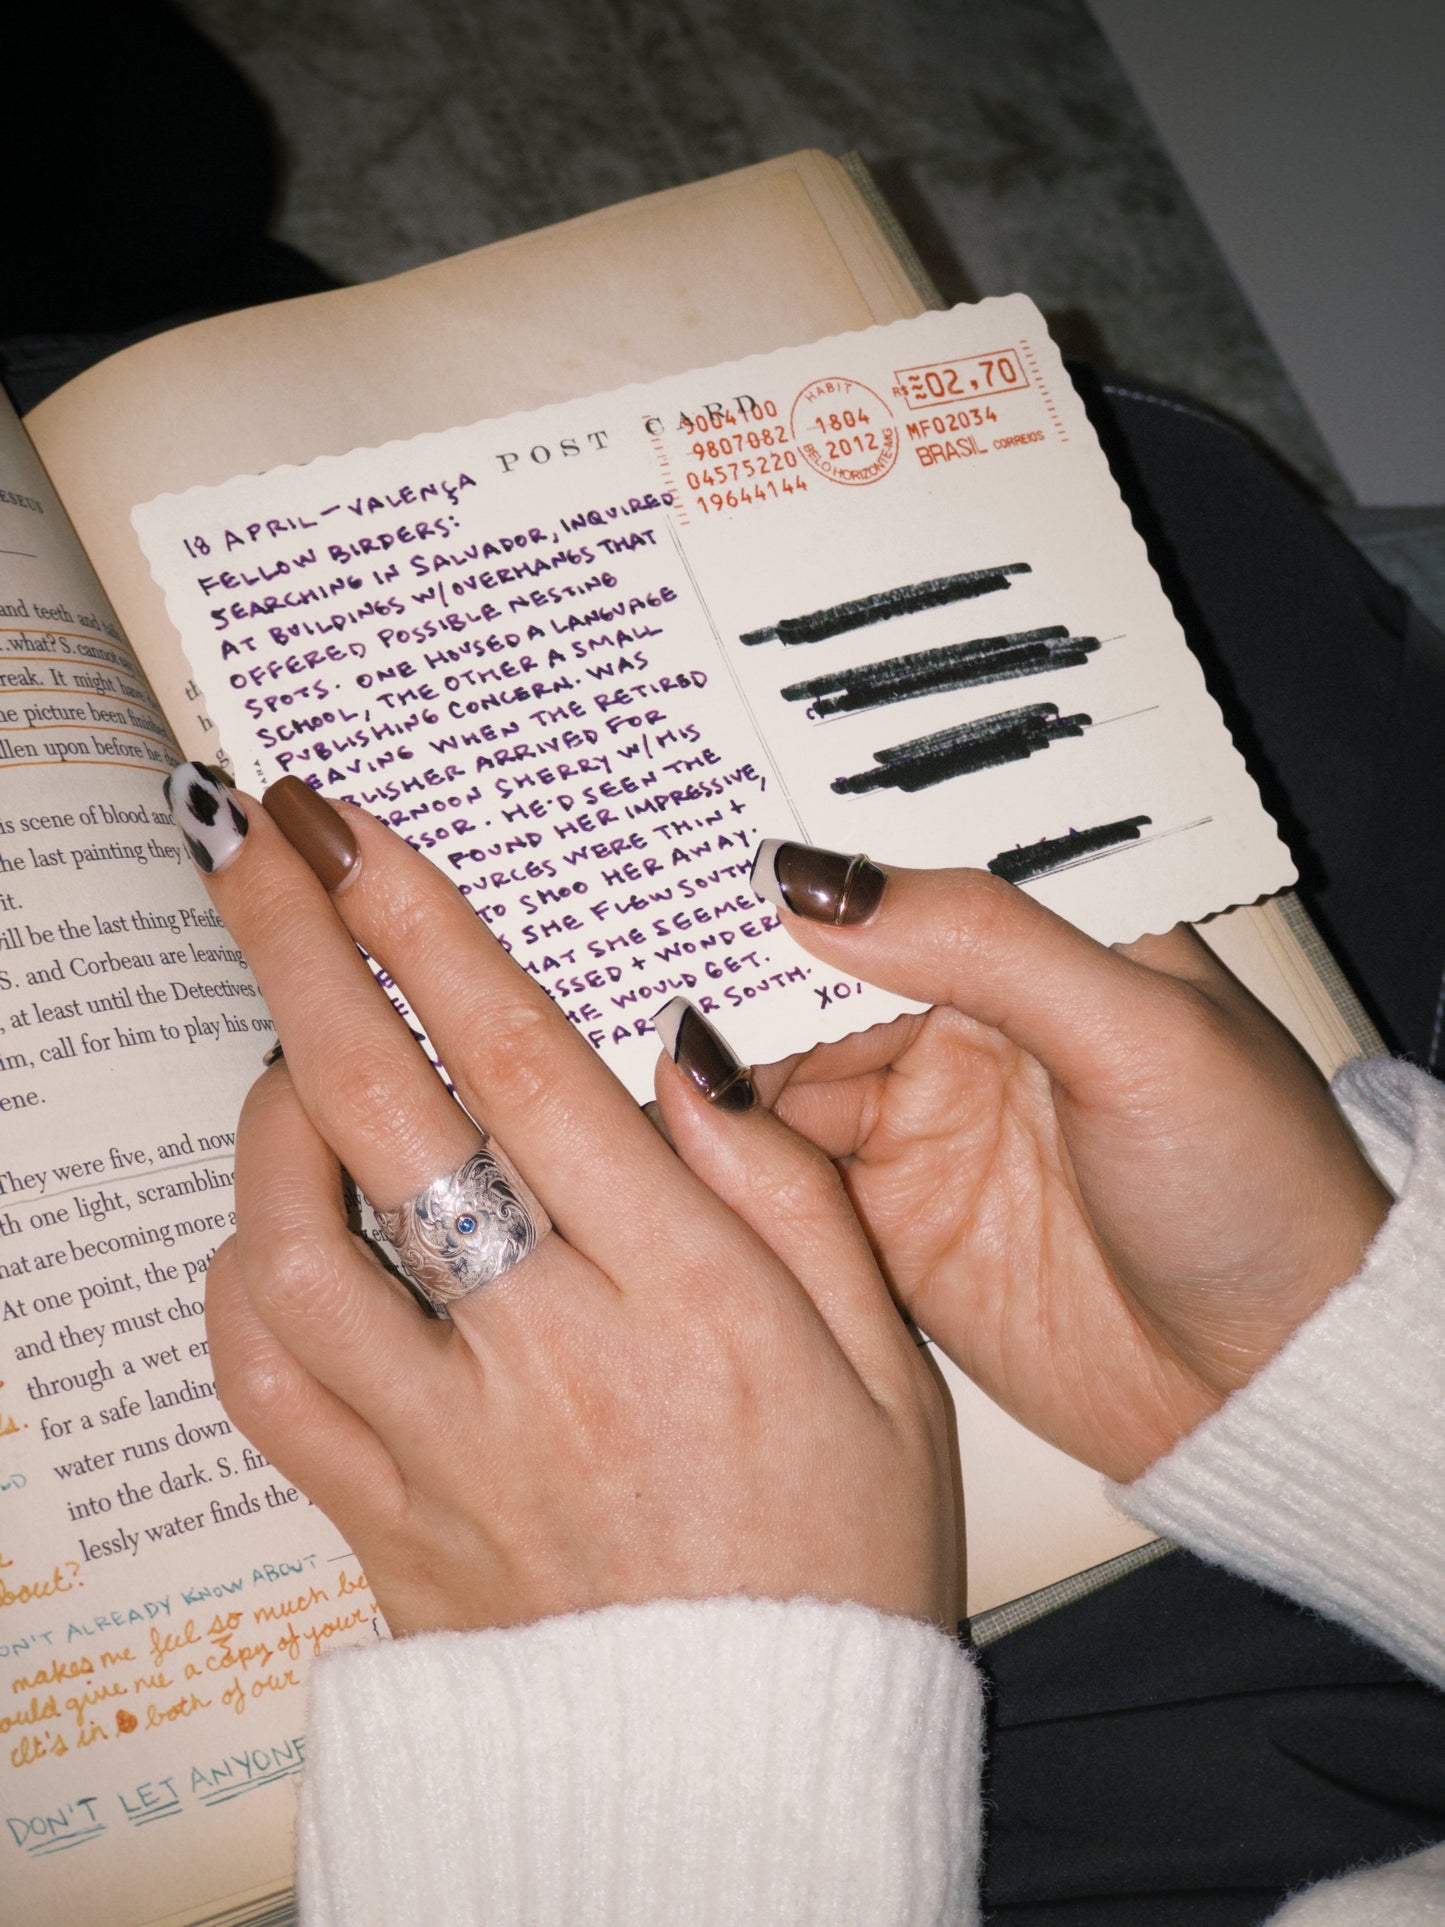 POST CARD
9004100
9807082
04575220
19644144
HABIT
1804
2012
BELO HORIZONTE-MG
R$ 02,70
MF02034
BRASIL CORREIOS
18 APRIL—VALENÇA
FELLOW BIRDERS:
SEARCHING IN SALVADOR, INQUIRED
AT BUILDINGS W/OVERHANGS THAT
OFFERED POSSIBLE NESTING
SPOTS. ONE HOUSED A LANGUAGE
SCHOOL, THE OTHER A SMALL
PUBLISHING CONCERN. WAS
EAVING WHEN THE RETIRED
BLISHER ARRIVED FOR
ERNOON SHERRY W/HIS
SSOR. HE'D SEEN THE
FOUND HER IMPRESSIVE,
OURCES WERE THIN +
TO SHOO HER AWAY.
S SHE FLEW SOUTH
HAT SHE SEEME
SSED + WONDER
HE WOULD GET.
FAR R SOUTH.
XO,
ESEUS
and teeth and
...what? S. cannot
reak. It might have
he picture been finished
llen upon before he
is scene of blood and
he last painting they
it.
ill be the last thing Pfeife
S. and Corbeau are leaving
, at least until the Detectives
im, call for him to play his own
ene.
They were five, and now
th one light, scrambling
hat are becoming more a
At one point, the pat
and they must cho
through a wet er
for a safe landing
water runs down
into the dark. S. fin
lessly water finds the
about?
ON'T ALREADY KNOW ABOUT —
makes me feel so much be
ould give me a copy of your
It's in both of our
DON'T LET ANYONE